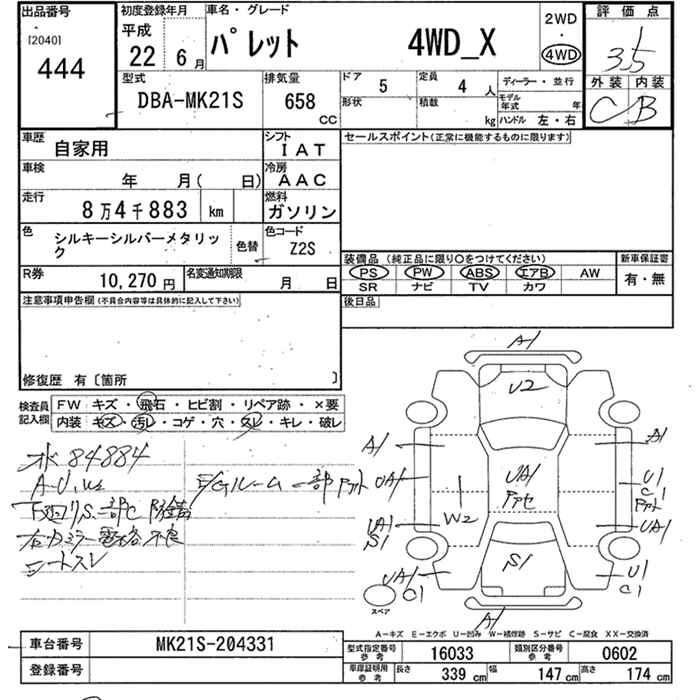 出品番号
[2040]
444
初度登録年月
平成
22 6月
車名・グレード
パレット 4WD_X
2WD
・
4WD
評価点
3.5
外装 内装
C B
型式
DBA-MK21S
排気量
658 cc
ドア 5
形状
定員 4 人
積載 kg
ディーラー・並行
モデル年式 年
ハンドル 左・右
車歴 自家用
シフト IAT
車検 年 月( 日)
冷房 AAC
走行 8万4千883 km
燃料 ガソリン
色 シルキーシルバーメタリック
色替
色コード Z2S
R券 10,270 円
名変通知期限 月 日
セールスポイント(正常に機能するものに限ります)
装備品(純正品に限り○をつけてください)
PS PW ABS エアB AW
SR ナビ TV カワ
新車保証書
有・無
後日品
注意事項申告欄(不具合内容等は具体的に記入して下さい)
修復歴 有〔箇所 〕
検査員記入欄
FW キズ・飛石・ヒビ割・リペア跡・×要
内装 キズ・汚レ・コゲ・穴・スレ・キレ・破レ
水 84884
A-U, us
下廻りS、一部C 防錆
右カミラー電格不良
シートスレ
E/Gルーム一部アト
A1
U2
A1
A1
UA1
UA1
アセ
U1
C1
アト
W2
UA1
S1
UA1
S1
UA1
C1
U1
C1
スペア
A1
A-キズ E-エクボ U-凹み W-補修跡 S-サビ C-腐食 XX-交換済
車台番号 MK21S-204331
登録番号
型式指定番号 参考 16033
類別区分番号 参考 0602
車庫証明用 参考 長さ 339 cm 幅 147 cm 高さ 174 cm